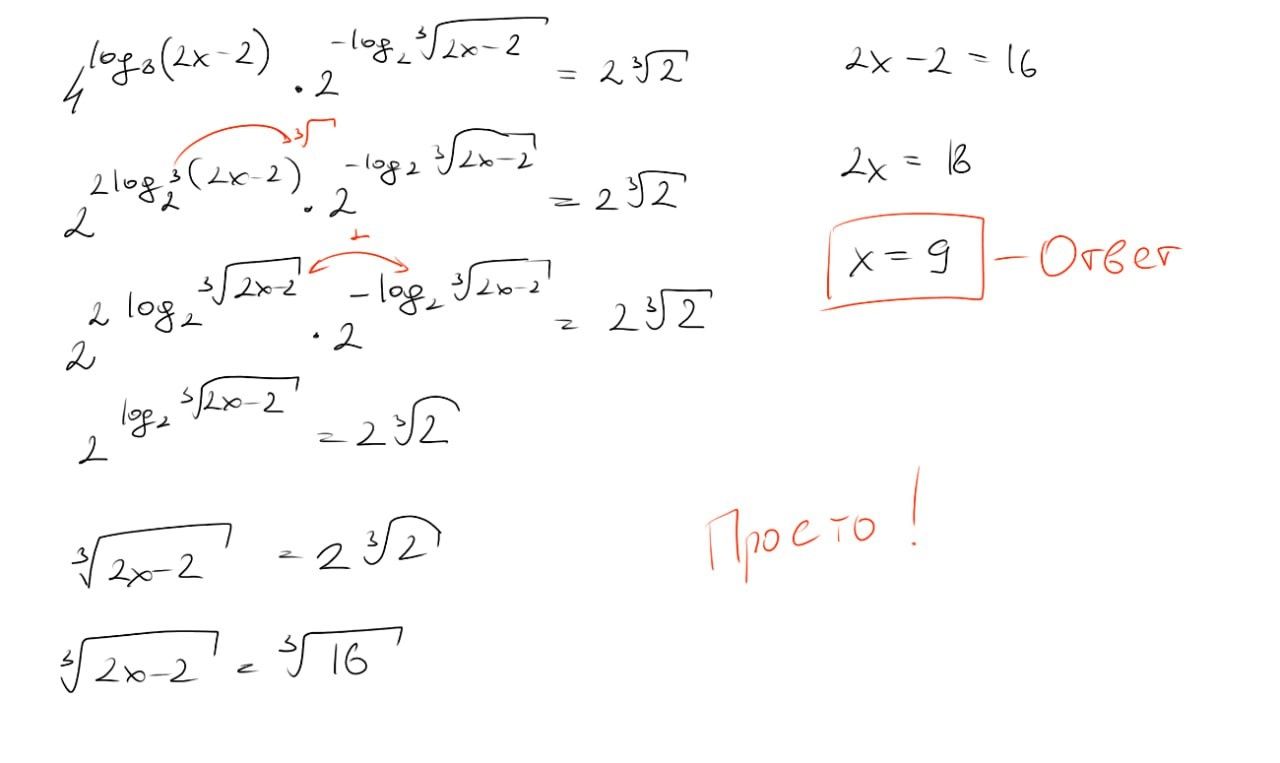 4^{log_8(2x-2)} · 2^{-log_2 ∛(2x-2)} = 2∛2
2^{2log_{2^3}(2x-2)} · 2^{-log_2 ∛(2x-2)} = 2∛2
2^{2 log_2 ∛(2x-2)} · 2^{-log_2 ∛(2x-2)} = 2∛2
2^{log_2 ∛(2x-2)} = 2∛2
∛(2x-2) = 2∛2
∛(2x-2) = ∛16
2x-2 = 16
2x = 18
x = 9 – Ответ
Просто!